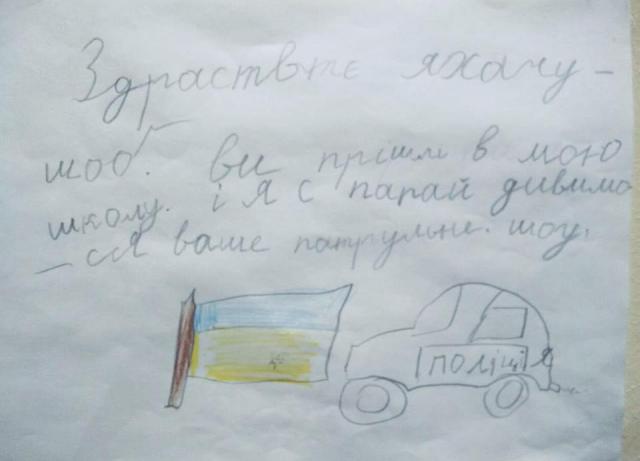 Здраствте яхачу-
шоб. ви прішли в мою
школу. і я с папай дивимо
-ся ваше патрульне. шоу.
поліція